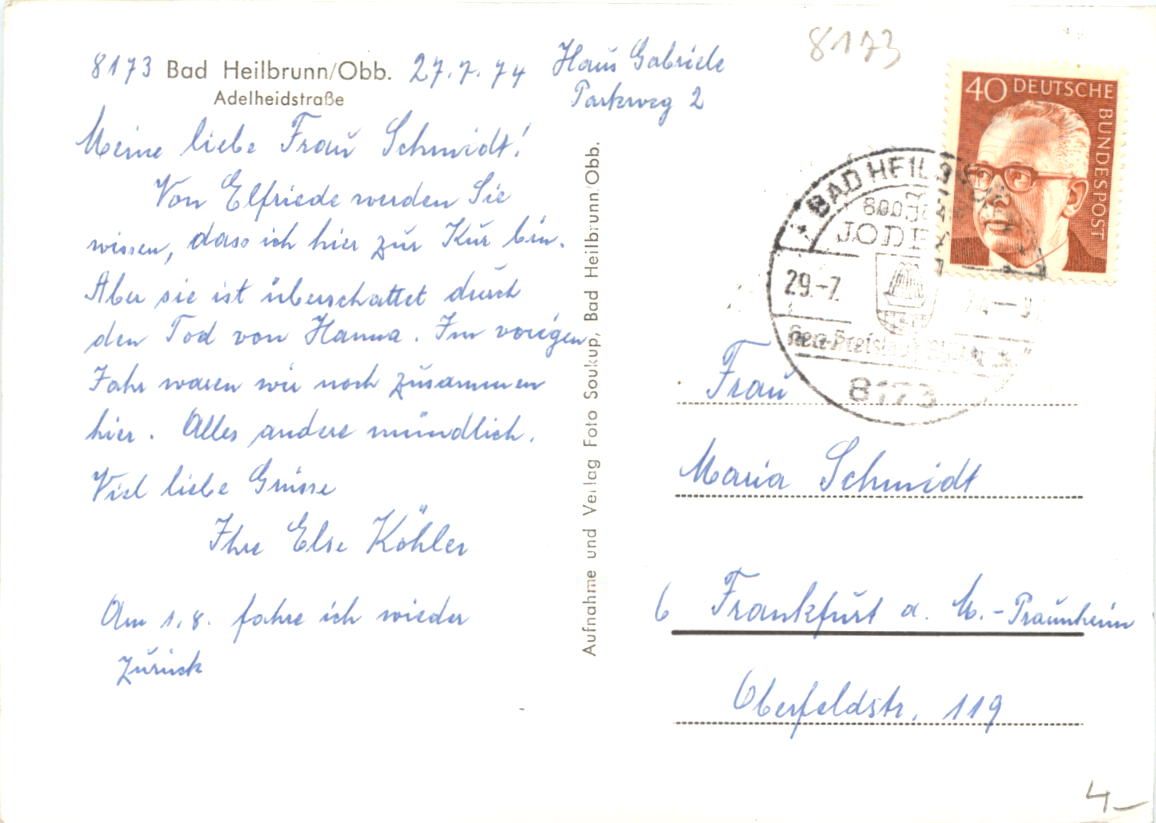 8173 Bad Heilbrunn/Obb. 27.7.74 Haus Gabriele
Adelheidstraße Parkweg 2
Meine liebe Frau Schmidt!
Von Elfriede werden Sie
wissen, dass ich hier zur Kur bin.
Aber sie ist überschattet durch
den Tod von Hanna. Im vorigen
Jahr waren wir noch zusammen
hier. Alles andere mündlich.
Viel liebe Grüsse
Ihre Else Köhler
Am 1.8. fahre ich wieder
zurück
Aufnahme und Verlag Foto Soukup, Bad Heilbrunn/Obb.
8173
40 DEUTSCHE
BUNDESPOST
BAD HEILB
800
JOD
29.-7.
8173
Frau
Maria Schmidt
6 Frankfurt a. M.-Praunheim
Oberfeldstr. 119
4,-